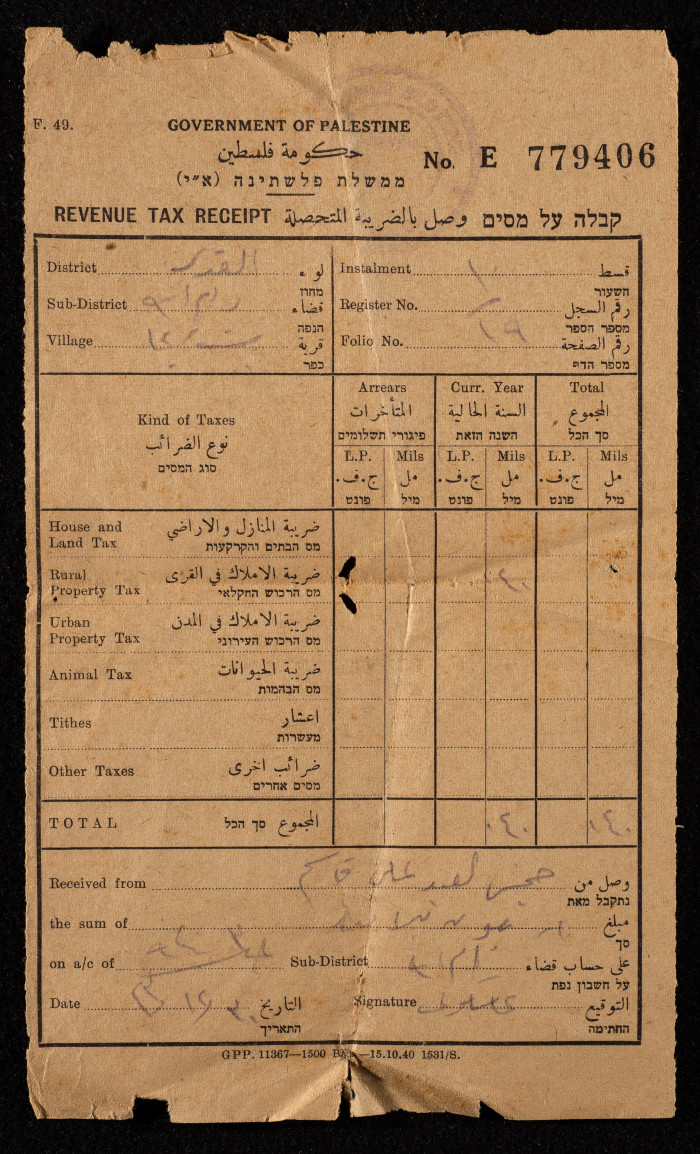 F. 49.
GOVERNMENT OF PALESTINE
حكومة فلسطين
ממשלת פלשתינה (א״י)
No. E 779406
REVENUE TAX RECEIPT وصل بالضريبة المتحصلة קבלה על מסים
District القدس لواء
מחוז
Sub-District رام الله قضاء
הנפה
Village قرية
כפר
Instalment ١ قسط
השעור
Register No. رقم السجل
מספר הספר
Folio No. ١٩ رقم الصفحة
מספר הדף
Kind of Taxes
نوع الضرائب
סוג המסים
Arrears Curr. Year Total
المتأخرات السنة الحالية المجموع
פיגורי תשלומים השנה הזאת סך הכל
L.P. Mils L.P. Mils L.P. Mils
ج.ف. مل ج.ف. مل ج.ف. مل
פונט מיל פונט מיל פונט מיל
House and Land Tax ضريبة المنازل والاراضي
מס הבתים והקרקעות
Rural Property Tax ضريبة الاملاك في القرى
מס הרכוש החקלאי
Urban Property Tax ضريبة الاملاك في المدن
מס הרכוש העירוני
Animal Tax ضريبة الحيوانات
מס הבהמות
Tithes اعشار
מעשרות
Other Taxes ضرائب اخرى
מסים אחרים
TOTAL المجموع סך הכל
Received from وصل من
נתקבל מאת
the sum of مبلغ
סך
on a/c of Sub-District رام الله على حساب قضاء
על חשבון נפת
Date التاريخ Signature التوقيع
התאריך החתימה
GPP. 11367—1500 Bks.—15.10.40 1531/S.